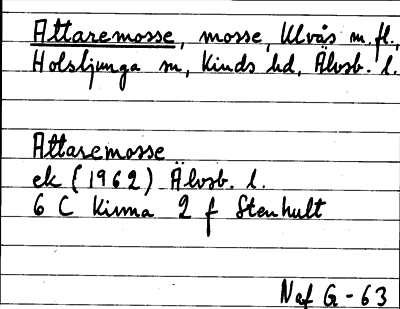 Attaremosse, mosse, Ulvås m.fl.,
Holsljunga sn, Kinds hd, Älvsb. l.
Attaremosse
ek (1962) Älvsb. l.
6 C Kinna 2 f Stenhult
Naf G-63